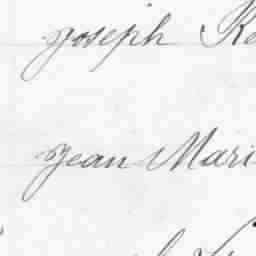 Joseph
Jean Mari